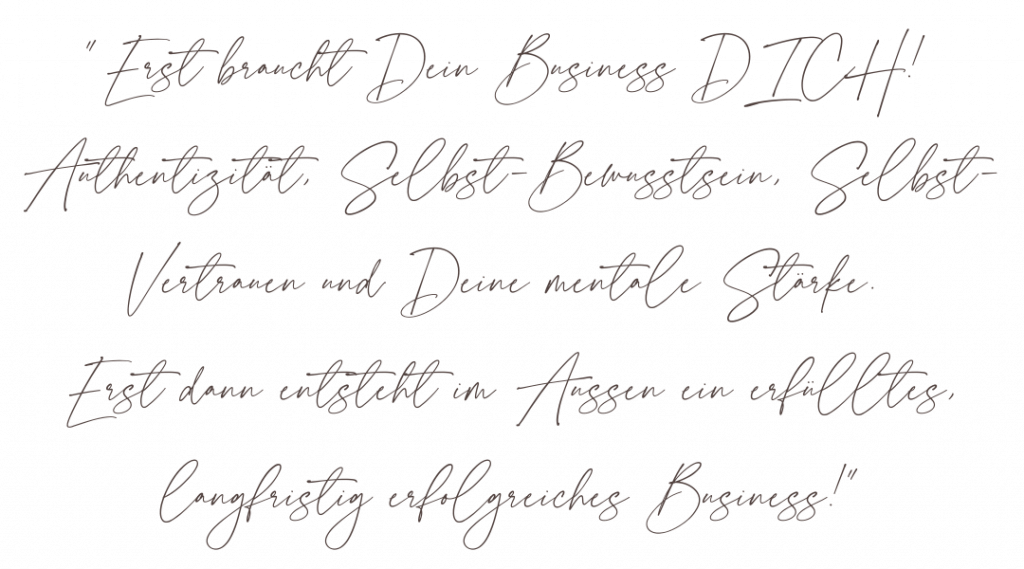 " Erst braucht Dein Business DICH!
Authentizität, Selbst-Bewusstsein, Selbst-
Vertrauen und Deine mentale Stärke.
Erst dann entsteht im Aussen ein erfülltes,
langfristig erfolgreiches Business!"